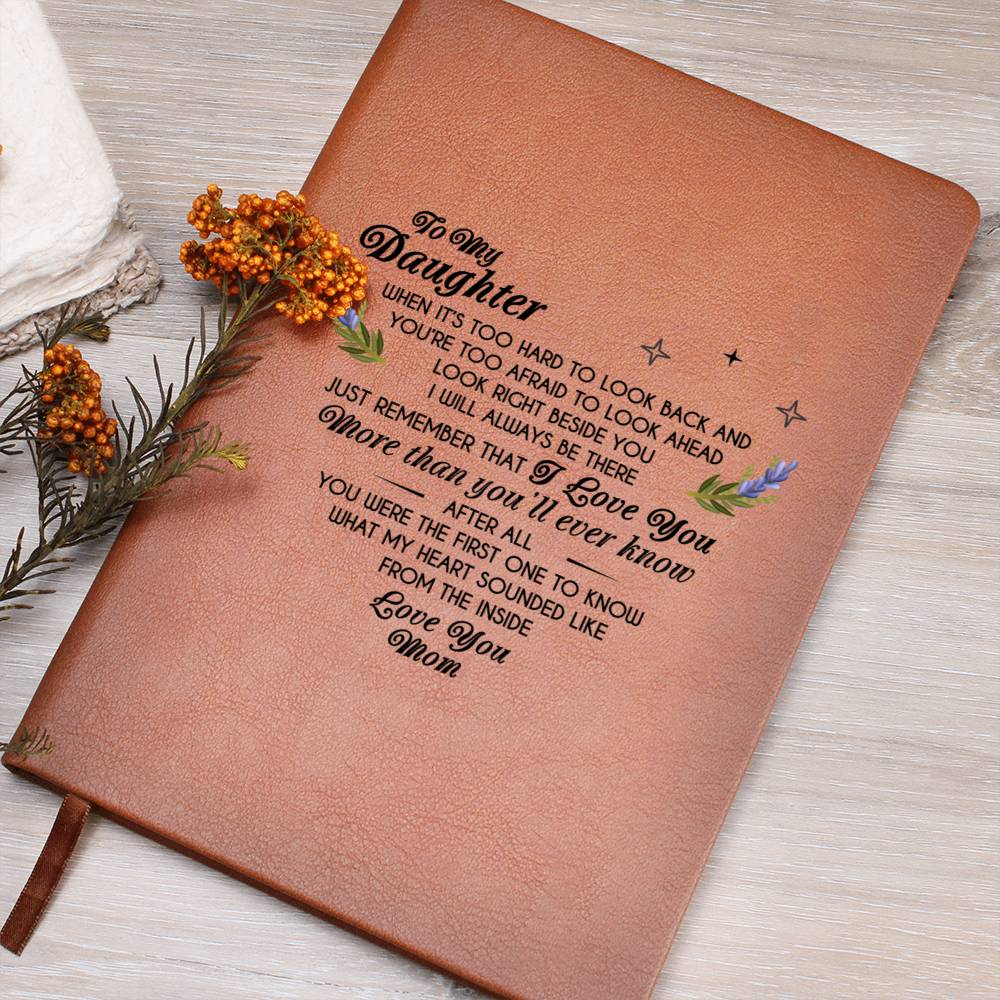 To My
Daughter
WHEN IT'S TOO HARD TO LOOK BACK AND
YOU'RE TOO AFRAID TO LOOK AHEAD
LOOK RIGHT BESIDE YOU
I WILL ALWAYS BE THERE
JUST REMEMBER THAT I Love You
More than you'll ever know
AFTER ALL
YOU WERE THE FIRST ONE TO KNOW
WHAT MY HEART SOUNDED LIKE
FROM THE INSIDE
Love You
Mom